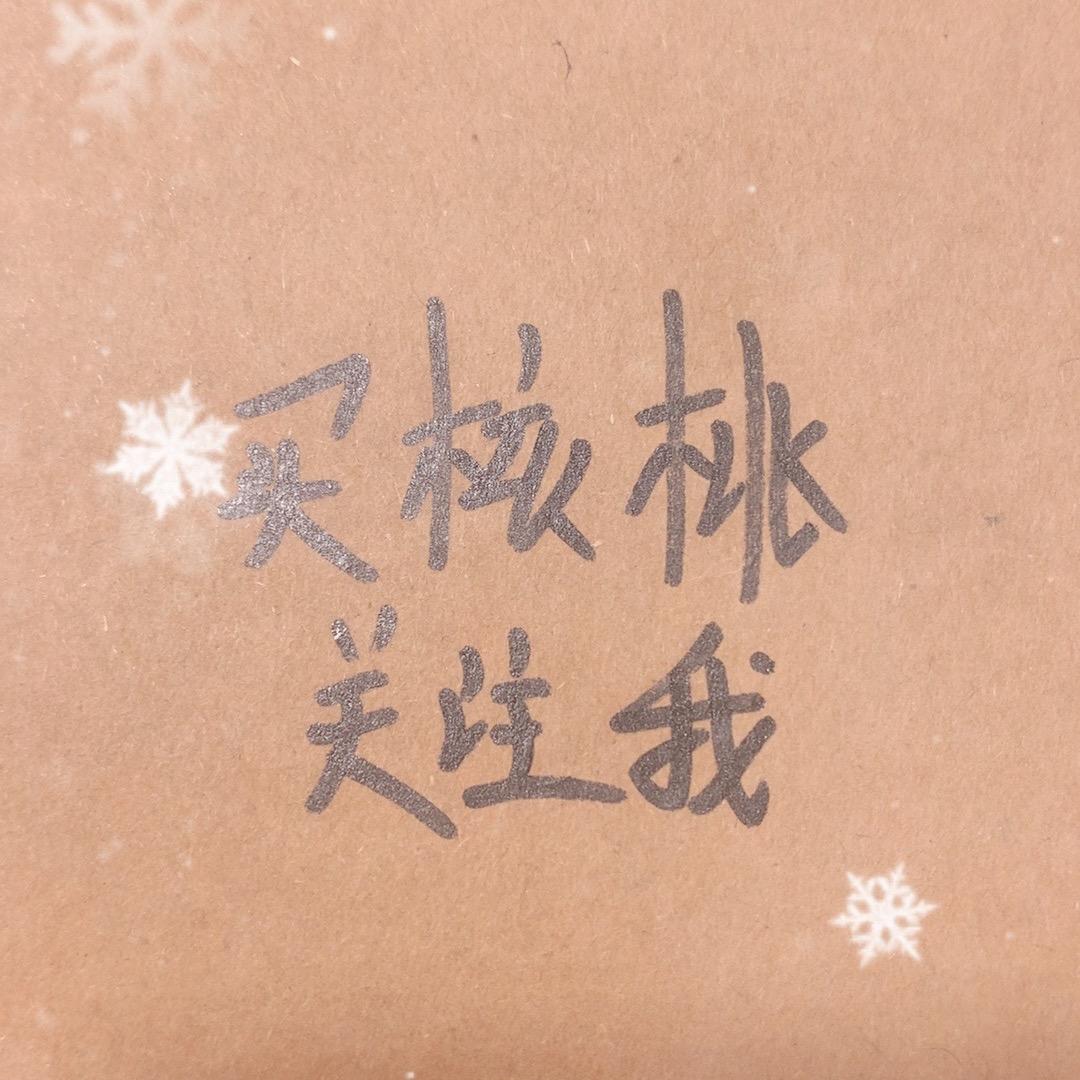 买核桃
关注我